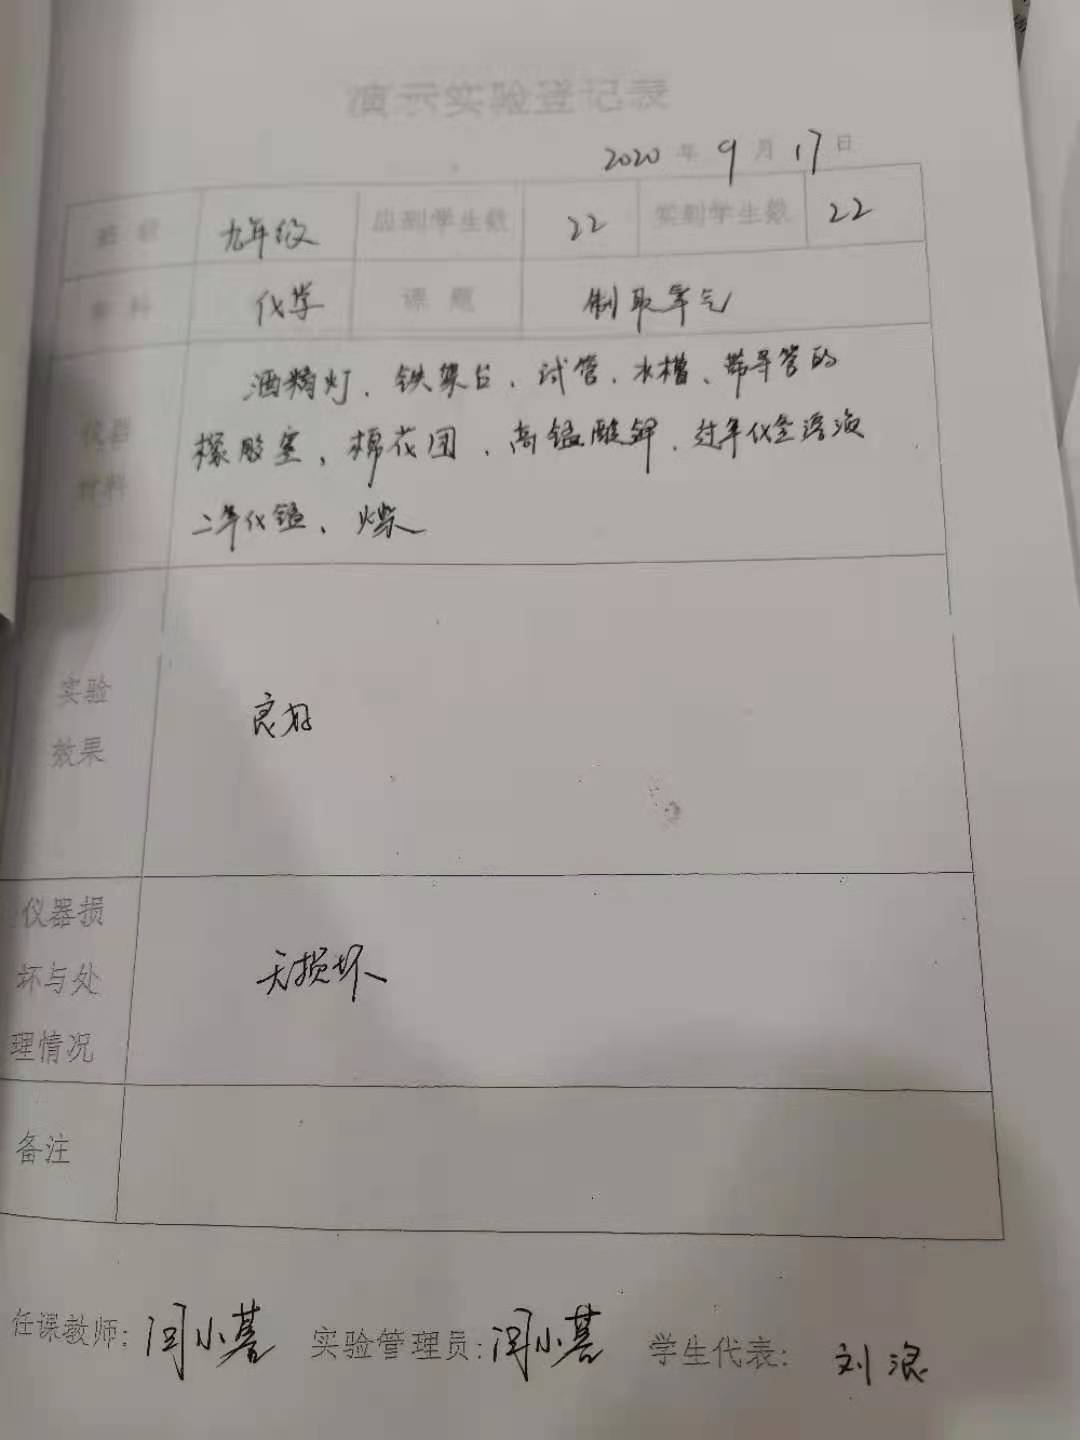 演示实验登记表
2020年9月17日
班级 九年级 应到学生数 22 实到学生数 22
学科 化学 课题 制取氧气
仪器
材料
酒精灯、铁架台、试管、水槽、带导管的
橡胶塞、棉花团、高锰酸钾、过氧化氢溶液
二氧化锰、火柴
实验
效果
良好
仪器损
坏与处
理情况
无损坏
备注
任课教师: 闫小 实验管理员: 闫小 学生代表: 刘浪